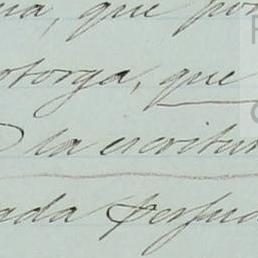 na, que por
otorga, que
la escritur
ada perju